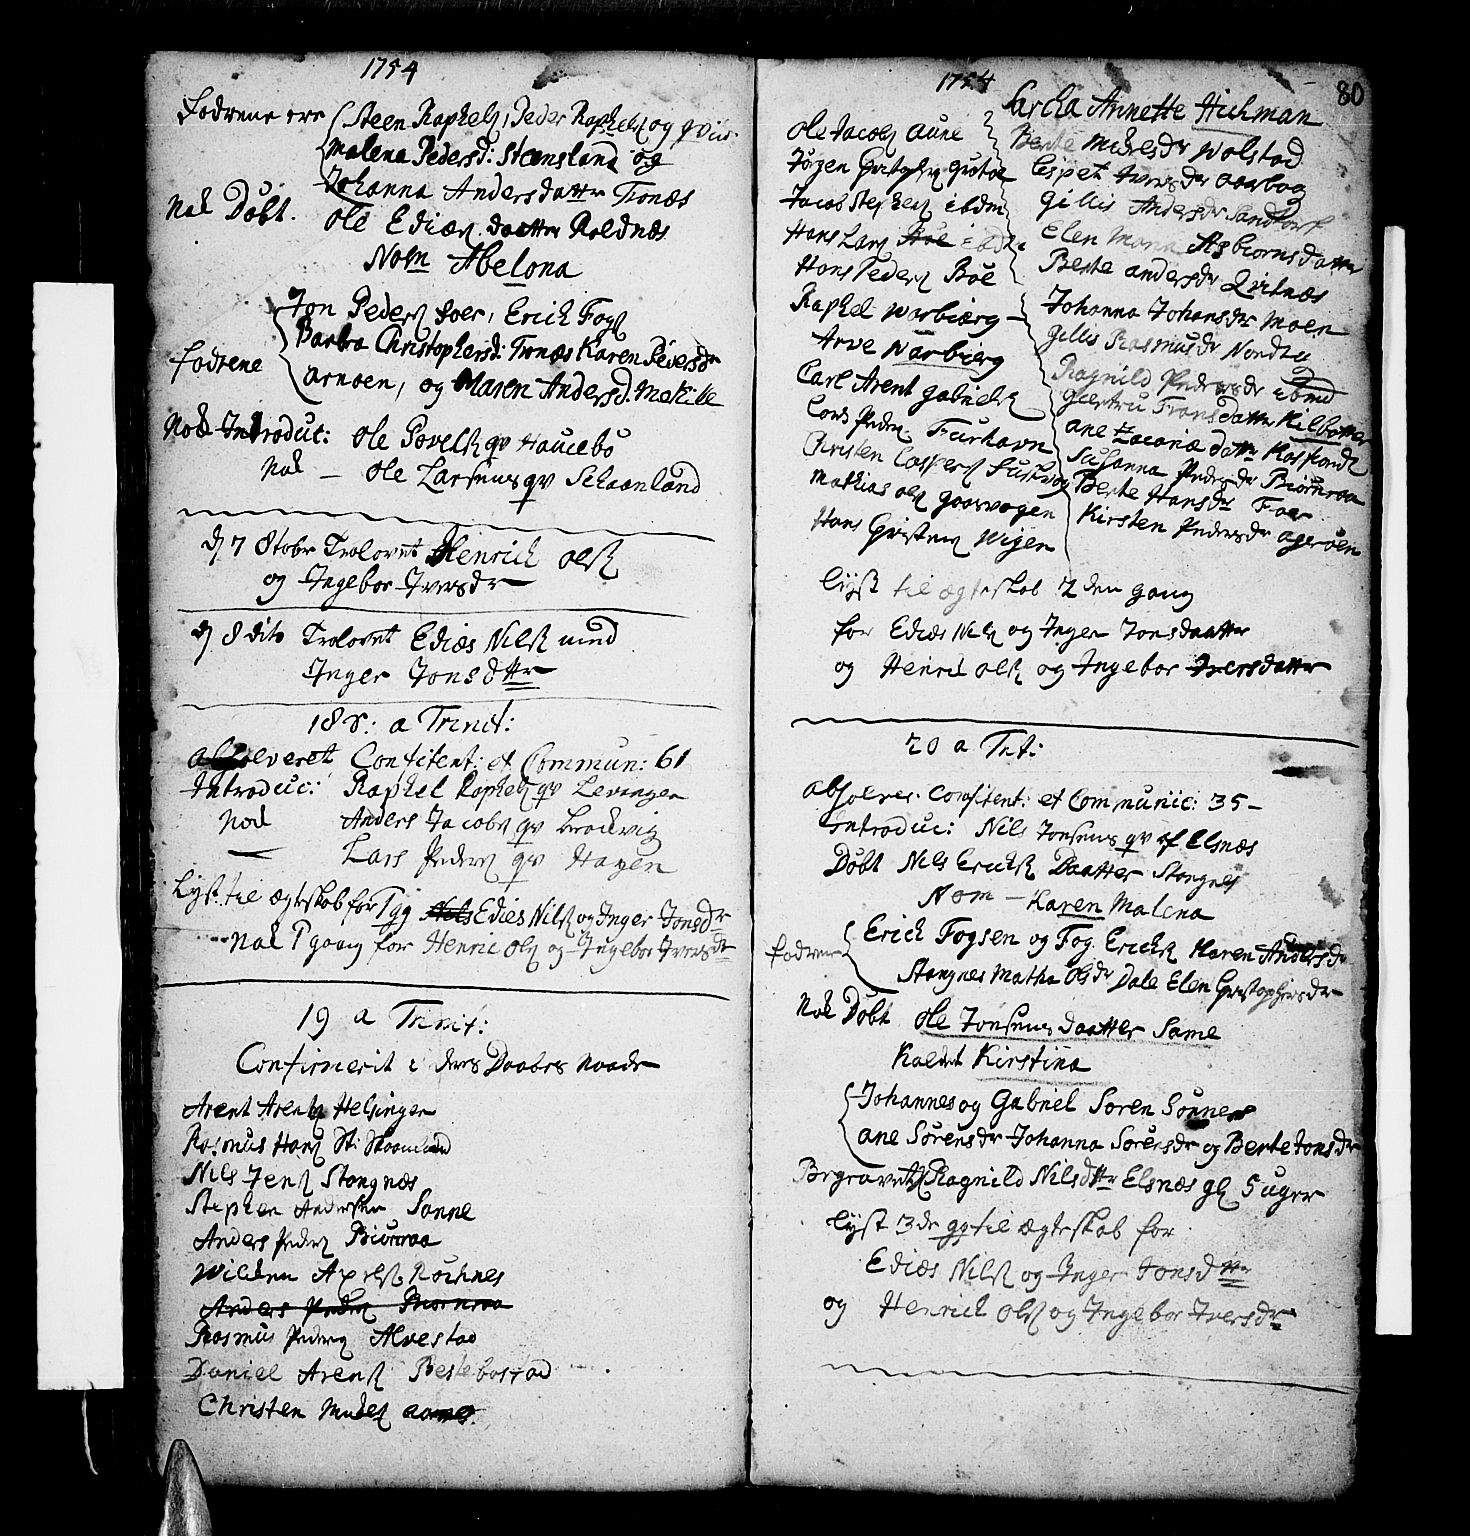 1754
fadrene ere Steen Raphels, Peder Raphels og qvin.
Malena Pedersd: Steensland og
Johanna Andersdatter Tronæs
Nok Døbt. Ole Ediæs. daatter Roldnæs
Nom Abelona
Jon Peders soer, Erich Fogs
Barbra Christophersd: Tronæs Karen Pedersdr
fadrene Arnøen, og Maren Andersd.
Nok Introduc: Ole Povels qv Haucebø
Nok — Ole Larsens qv Schaanland
d 7 8tobr Trolovet Henrich Ols
og Ingebor Iversdr
d 8 dito Trolovet Ediæs Nils med
Inger Jonsdttr
18 : a Trinit:
absolveret Confitent: et Commun: 61
Introduc: Raphel Raphels qv Levingen
Nok Anders Jacobs qv
— Lars Peders qv Hagen
Lyst til ægteskab for 1 gg Ediæs Nils og Inger Jonsdr
Nok 1 gaang for Henric Ols og Ingebor Iversdr
19 a Trinit:
Confirmerit i deres Daabes Naade
Arent Arents Helsingen
Rasmus Hans St:
Nils Jens Stongnæs
Stephen Andersen Sanne
Anders Peders Biørnraa
Willem Axels Rochnes
Anders Peders Biørnraa
Rasmus Peders Alvestad
Daniel Arens Bestebostad
Christen Mickels
1754
80
Ole Jacobs Aune
Jørgen Christophers
Jacob Stephens ibdm
Hans Lars
Hans Peders Bøe
Raphel Warbierg
Arve Warbierg
Carl Arent Gabriels
Lars Peders Furhavn
Christen Caspers
Mathias Ols Gaarvogen
Hans Christens Wigen
Sarcha Annette Hichman
Berte Mickelsdr Wolstad
Lispet Iversdr Aarbog
Gillis Andersdr Sandtorf
Elen Maria Asbiørnsdatter
Berte Andersdr Qvitnæs
Johanna Johansdr Moen
Gillis Rasmusdr
Ragnild Pedersdr ibmd
Giertru Fransdatter Kilbotten
Ane Zacariæ datter
Susanna Pedersdr Biørnraa
Berte Hansdr
Kirsten Pedersdr
Lyst til ægteskab 2den gang
for Ediæs Nils og Inger Jonsdaatter
og Henric Ols og Ingebor Iversdatter
20 a Trit:
Absolver. Confitent: et Communic: 35 –
Introduc: Nils Jonsens qv af Elsnæs
Døbt Nils Erichs Daatter Stongnes
Nom – Karen Malena
Erich Fogsen og Fog Erichs Maren Andersdr
fadrene Stongnes Martha Olsdr Dale Elen Christophersdr
Nok Døbt Ole Jonsens daatter Same
Kaldet Kirstina
Johannes og Gabriel Søren Sønner
Ane Sørensdr Johanna Sørensdr og Berte Jonsdr
Begravet Ragnild Nilsdttr Elsnæs gl 5 uger
Lyst 3de gg til ægteskab for
Ediæs Nils og Inger Jonsdttr
og Henrich Ols og Ingebor Iversdr